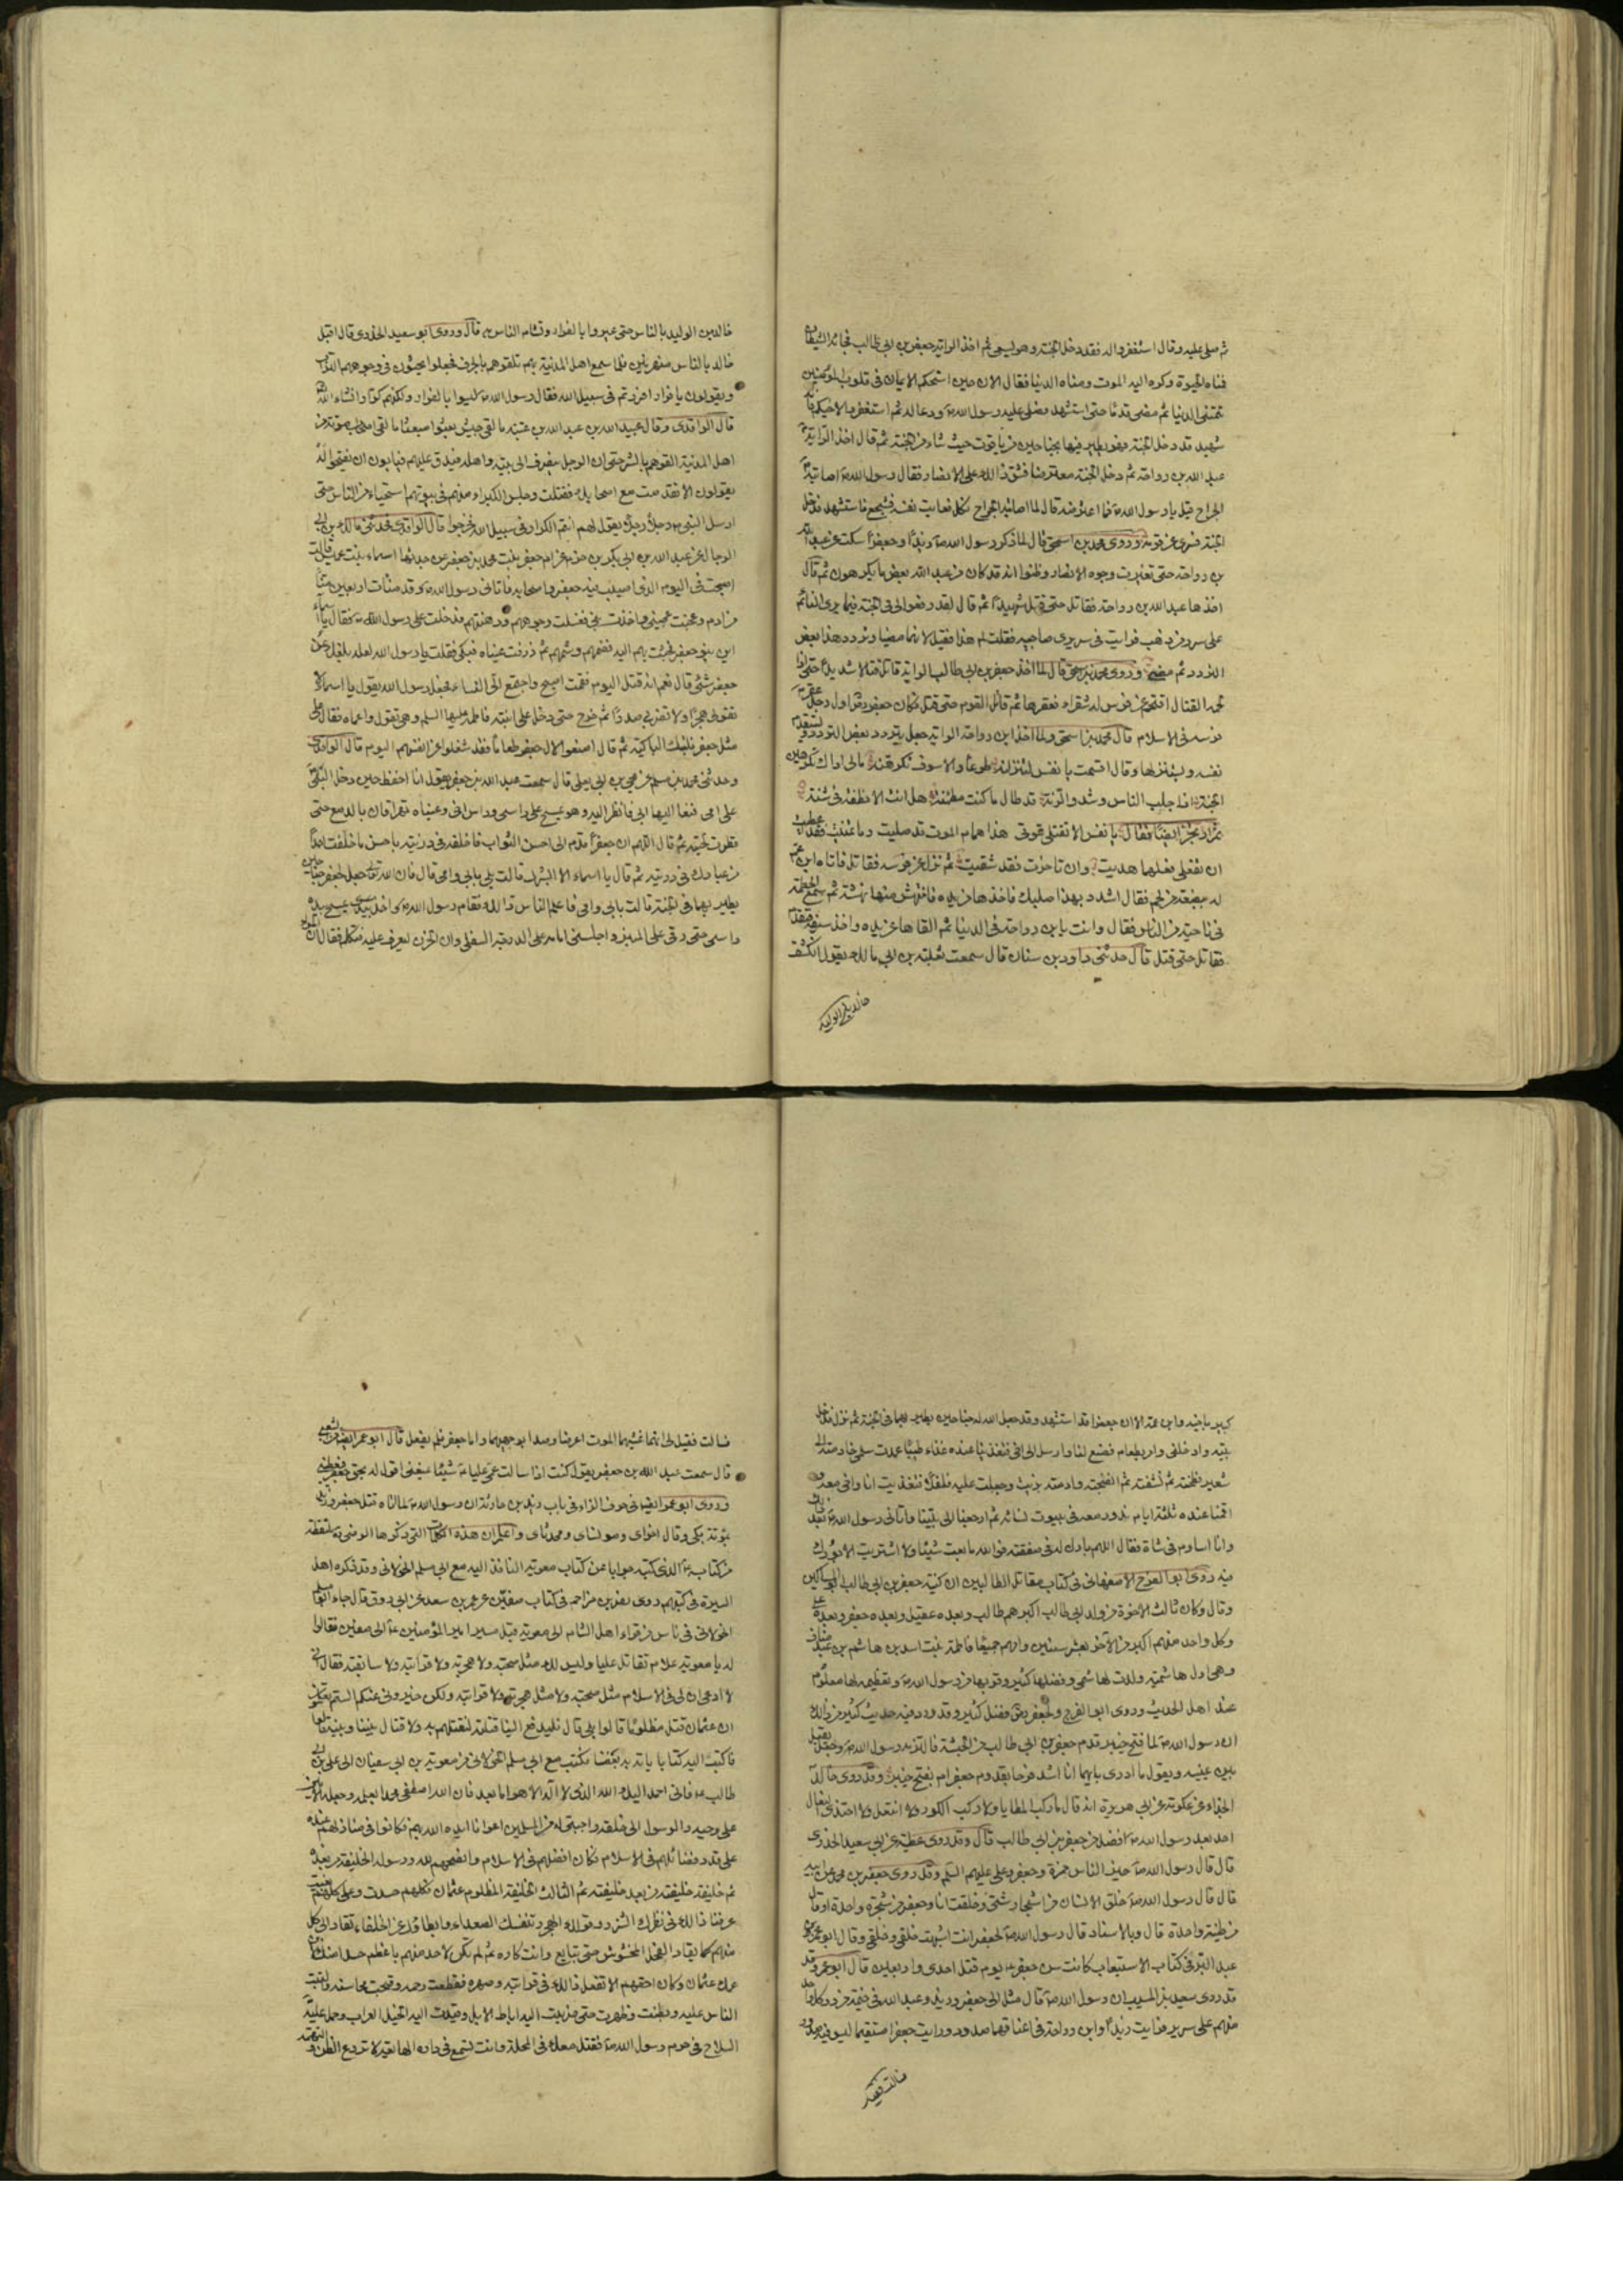 ثم صلى عليه وقال استغفروا له فقد دخل الجنة وهو يسعى ثم اخذ الراية جعفر بن ابي طالب فجاءه الشيطان
فمناه الحيوة وكره اليه الموت ومناه الدنيا فقال الان حين استحكم الايمان في قلوب المؤمنين
تمنيني الدنيا ثم مضى قدما حتى استشهد فصلى عليه رسول الله ص ودعا له ثم استغفروا لاخيكم فانه
شهيد قد دخل الجنة فهو يطير فيها بجناحين من ياقوت حيث شاء من الجنة ثم قال اخذ الراية
عبد الله بن رواحة ثم دخل الجنة معترضا فشق ذالك على الانصار فقال رسول الله ص اصابته
الجراح قيل يا رسول الله ص فما اعتراضه قال لما اصابته الجراح نكل فعاتب نفسه فشجع فاستشهد فدخل
الجنة فسرى عن قومه وروى محمد بن اسحق قال لما ذكر رسول الله ص زيدا وجعفرا سكت عن عبد الله
بن رواحة حتى تغيرت وجوه الانصار وظنوا انه قد كان من عبد الله بعض ما يكرهون ثم قال
اخذها عبد الله بن رواحة فقاتل حتى قتل شهيدا ثم قال لقد رفعوا الى في الجنة فيما يرى النائم
على سرر من ذهب فرايت في سرير ابن رواحة ازورارا عن سريري صاحبيه فقلت لم هذا فقيل لانهما مضيا وتردد هذا بعض
التردد ثم مضى وروى محمد بن اسحق قال لما اخذ جعفر بن ابي طالب الراية قاتل قتالا شديدا حتى اذا
لحمه القتال اقتحم عن فرس له شقراء فعقرها ثم قاتل القوم حتى قتل فكان جعفر رض اول رجل عقر
فرسه في الاسلام قال محمد بن اسحق ولما اخذ ابن رواحة الراية جعل يتردد بعض التردد ويستقدم
نفسه ويستنزلها وقال اقسمت يا نفس لتنزلنه طوعا والا سوف تكرهنه مالي اراك تكرهين
الجنة اذا جلب الناس وشدوا الرنة قد طال ما كنت مطمئنة هل انت الا نطفة في شنة
ثم ارتجز ايضا فقال يا نفس الا تقتلى تموتى هذا حمام الموت قد صليت وما تمنيت فقد اعطيت
ان تفعلى فعلهما هديت وان تاخرت فقد شقيت ثم نزل عن فرسه فقاتل فاتاه ابن عم
له ببضعة من لحم فقال اشدد بهذا صلبك فاخذها من يده فانتهش منها نهشة ثم سمع الحطمة
في ناحية من الناس فقال وانت يا بن رواحة في الدنيا ثم القاها عن يده واخذ سيفه فتقدم
فقاتل حتى قتل قال حدثني داود بن سنان قال سمعت ثعلبة بن ابي مالك يقول انكشف
خالد بن الوليد
خالد بن الوليد بالناس حتى عيروا بالفرار وتشام الناس به قال وروى ابو سعيد الخدري قال اقبل
خالد بالناس منهزمين فلما سمع اهل المدينة بهم تلقوهم بالجرف فجعلوا يحثون في وجوههم التراب
ويقولون يا فرار افررتم في سبيل الله فقال رسول الله ص ليسوا بالفرار ولكنهم كرار ان شاء الله
قال الواقدي وقال عبيد الله بن عبد الله بن عتبة ما لقى جيش بعثوا مبعثا ما لقى اصحاب موتة من
اهل المدينة لقوهم بالشر حتى ان الرجل ينصرف الى بيته واهله فيدق عليهم فيابون ان يفتحوا له
يقولون الا تقدمت مع اصحابك فقتلت وجلس الكبراء منهم في بيوتهم استحياء من الناس حتى
ارسل النبي ص رجلا رجلا يقول لهم انتم الكرار في سبيل الله فخرجوا قال الواقدي فحدثني مالك بن ابي
الرجال عن عبد الله بن ابي بكر بن حزم عن ام جعفر بنت محمد بن جعفر عن جدتها اسماء بنت عميس قالت
اصبحت في اليوم الذي اصيب فيه جعفر واصحابه فاتاني رسول الله ص وقد منات اربعين منا
من ادم وعجنت عجيني واخذت بني فغسلت وجوههم ودهنتهم فدخل على رسول الله ص فقال يا اسماء
اين بنو جعفر فجئت بهم اليه فضمهم وشمهم ثم ذرفت عيناه فبكى فقلت يا رسول الله لعله بلغك عن
جعفر شئ قال نعم انه قتل اليوم فقمت اصيح واجتمع الى النساء فجعل رسول الله يقول يا اسماء لا
تقولى هجرا ولا تضربى صدرا ثم خرج حتى دخل على ابنته فاطمة عليها السلم وهي تقول واعماه فقال على
مثل جعفر فلتبك الباكية ثم قال اصنعوا لال جعفر طعاما فقد شغلوا عن انفسهم اليوم قال الواقدي
وحدثني محمد بن مسلم عن يحيى بن ابي يعلى قال سمعت عبد الله بن جعفر يقول انا احفظ حين دخل النبي
على امي فنعا اليها ابي فانظر اليه وهو يمسح على راسي وراس اخي وعيناه تهراقان بالدمع حتى
قطرت لحيته ثم قال اللهم ان جعفرا قدم الى احسن الثواب فاخلفه في ذريته باحسن ما خلفت احدا
من عبادك في ذريته ثم قال يا اسماء الا ابشرك قالت بلى بابي وامي قال فان الله تعالى جعل لجعفر جناحين
يطير بهما في الجنة قالت بابي وامي فاعلم الناس ذالك فقام رسول الله ص واخذ بيدي يمسح بيده
راسي حتى رقى على المنبر واجلسني امامه على الدرجة السفلى وان الحزن ليعرف عليه فتكلم فقال ان المرء
كثير باخيه وابن عمه الا ان جعفرا قد استشهد وقد جعل الله له جناحين يطير بهما في الجنة ثم نزل فدخل
بيته وادخلني وامر بطعام فصنع لنا وارسل الى اخي فتغدينا عنده غداء طيبا عمدت سلمى خادمته الى
شعير فطحنته ثم نشفته ثم انضجته وادمته بزيت وجعلت عليه فلفلا فتغديت انا واخي معه
اقمنا عنده ثلثة ايام ندور معه في بيوت نسائه ثم ارجعنا الى بيتنا واتاني رسول الله ص بعد ذالك
وانا اساوم في شاة فقال اللهم بارك له في صفقته فوالله ما بعت شيئا ولا اشتريت الا بورك
فيه روى ابو الفرج الاصفهاني في كتاب مقاتل الطالبيين ان كنية جعفر بن ابي طالب ابو المساكين
وقال وكان ثالث الاخوة من ولد ابي طالب اكبرهم طالب وبعده عقيل وبعده جعفر وبعده على
وكل واحد منهم اكبر من الآخر بعشر سنين وامهم جميعا فاطمة بنت اسد بن هاشم بن عبد مناف
وهي اول هاشمية ولدت لهاشمي وفضلها كثير وقربها من رسول الله ص وتعظيمه لها معلوم
عند اهل الحديث وروى ابو الفرج ولجعفر رض فضل كثير وقد ورد فيه حديث كثير من ذالك
ان رسول الله ص لما فتح خيبر قدم جعفر بن ابي طالب من الحبشة فالتزمه رسول الله ص وجعل يقبل
بين عينيه ويقول ما ادرى بايهما انا اشد فرحا بقدوم جعفر ام بفتح خيبر وقد روى خالد
الحذاء عن عكرمة عن ابي هريرة انه قال ما ركب المطايا ولا ركب الكور ولا انتعل ولا احتذى النعال
احد بعد رسول الله ص افضل من جعفر بن ابي طالب قال وقد روى عطية عن ابي سعيد الخدري
قال قال رسول الله ص خير الناس حمزة وجعفر وعلى عليهم السلم وقد روى جعفر بن محمد عن ابيه
قال قال رسول الله ص خلق الانسان من اشجار شتى وخلقت انا وجعفر من شجرة واحدة او قال
من طينة واحدة قال وبالاسناد قال رسول الله ص لجعفر انت اشبهت خلقي وخلقي وقال ابو عمر بن
عبد البر في كتاب الاستيعاب كانت سن جعفر ع يوم قتل احدى واربعين قال ابو عمر وقد
قد روى سعيد بن المسيب ان رسول الله ص قال مثل لي جعفر وزيد وعبد الله في خيمة من در وكل واحد
منهم على سرير فرايت زيدا وابن رواحة في اعناقهما صدود ورايت جعفرا مستقيما ليس فيه صدود
فسالت فقيل
فسالت فقيل لي انهما غشيهما الموت اعرضا وصدا بوجههما واما جعفر فلم يفعل قال ابو عمر ايضا عن الشعبي
قال سمعت عبد الله بن جعفر يقول كنت اذا سالت عمي عليا ع شيئا يمنعني اقول له بحق جعفر فيعطيني
وروى ابو عمر ايضا في حرف الزاء في باب زيد بن حارثة ان رسول الله ص لما اتاه قتل جعفر وزيد
بموتة بكى وقال اخواي ومونساي ومحدثاي واعلم ان هذه الكلمات التي ذكرها الرضي ره ملتقطة
من كتابه ع الذي كتبه جوابا عن كتاب معوية النافذ اليه مع ابي مسلم الخولاني وقد ذكره اهل
السيرة في كتبهم روى نصر بن مزاحم في كتاب صفين عن عمر بن سعد عن ابي ورق قال جاء ابو مسلم
الخولاني في ناس من قراء اهل الشام الى معوية قبل مسير امير المؤمنين ع الى صفين فقالوا
له يا معوية علام تقاتل عليا وليس لك مثل صحبته ولا هجرته ولا قرابته ولا سابقته فقال اني
لا ادعي ان لي في الاسلام مثل صحبته ولا مثل هجرته ولا قرابته ولكن خبروني عنكم الستم تعلمون
ان عثمان قتل مظلوما قالوا بلى قال فليدفع الينا قتلته لنقتلهم به ولا قتال بيننا وبينه قالوا
فاكتب اليه كتابا ياته به بعضنا فكتب مع ابي مسلم الخولاني من معوية بن ابي سفيان الى على بن ابي
طالب ع فاني احمد اليك الله الذي لا اله الا هو اما بعد فان الله اصطفى محمدا بعلمه وجعله الامين
على وحيه والرسول الى خلقه واجتبى له من المسلمين اعوانا ايده الله بهم فكانوا في منازلهم عنده
على قدر فضائلهم في الاسلام فكان افضلهم في الاسلام وانصحهم لله ورسوله الخليفة من بعده
ثم خليفة خليفته من بعد خليفته ثم الثالث الخليفة المظلوم عثمان فكلهم حسدت وعلى كلهم بغيت
عرفنا ذالك في نظرك الشزر وقولك الهجر وتنفسك الصعداء وابطائك عن الخلفاء تقاد الى كل
منهم كما يقاد الفحل المخشوش حتى تبايع وانت كاره ثم لم تكن لاحد منهم باعظم حسدا منك لابن
عمك عثمان وكان احقهم الا تفعل ذالك في قرابته وصهره فقطعت رحمه وقبحت محاسنه والبت
الناس عليه وبطنت وظهرت حتى ضربت اليه اباط الابل وقيدت اليه الخيل العراب وحمل عليه
السلاح في حرم رسول الله ص فقتل معك في المحلة وانت تسمع في داره الهايعة لا تردع الظن والتهمة